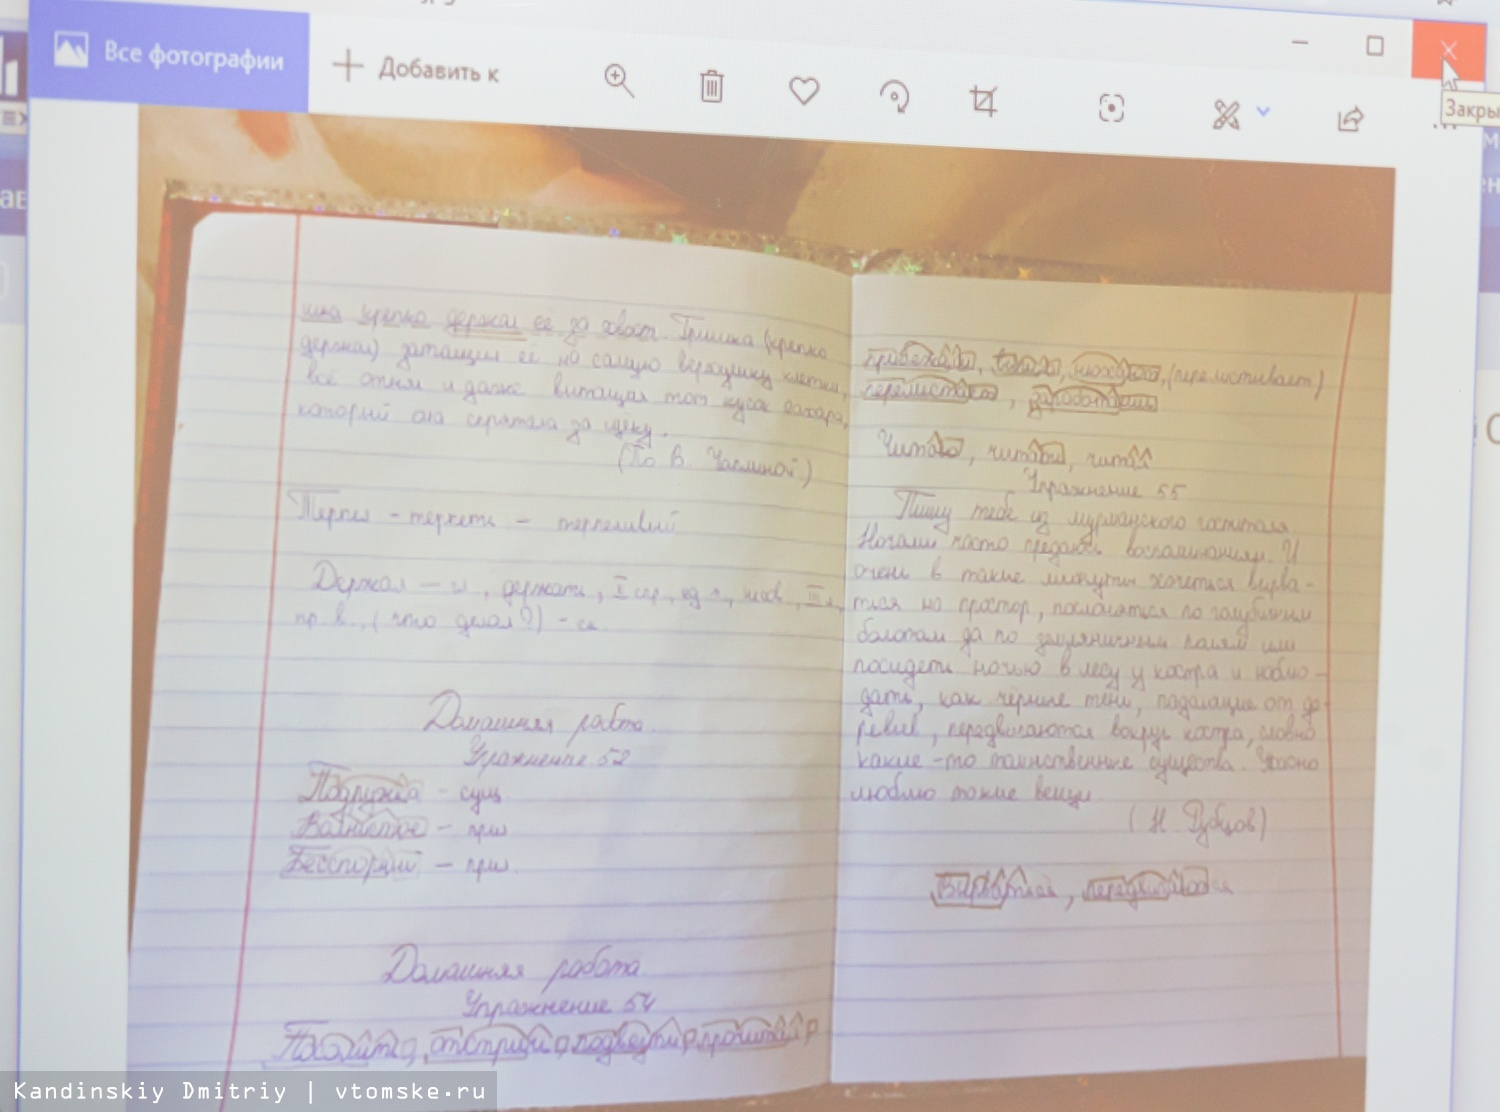 Все фотографии
Добавить к
Закры
шка крепко держал её за хвост. Гришка (крепко
держал) затащил её на самую верхушку клетки,
всё отнял и даже вытащил тот кусок сахара,
который она спрятала за щеку.
(По В. Чаплиной)
Терпел - терпеть - терпеливый
Держал — держать, II спр, ед ч, несов, III
пр. в., (что делал?) - ск
Домашняя работа
Упражнение 52
Подружка - сущ
Волнистое - прил
Бесспорный - прил.
Домашняя работа
Упражнение 54
прибежали, (перелистывает)
перелистают, заработаешь
Читаю, читать, читал
Упражнение 55
Пишу тебе из мурманского госпиталя.
Ночами часто предаюсь воспоминаниям. И
очень в такие минуты хочется вырва-
ться на простор, послоняться по голубичным
болотам да по земляничным полям или
посидеть ночью в лесу у костра и наблю-
дать, как чёрные тени, падающие от де-
ревьев, передвигаются вокруг костра, словно
какие-то таинственные существа. Ужасно
люблю такие вещи.
(Н. Рубцов)
Вырваться, передвигаются
Kandinskiy Dmitriy | vtomske.ru